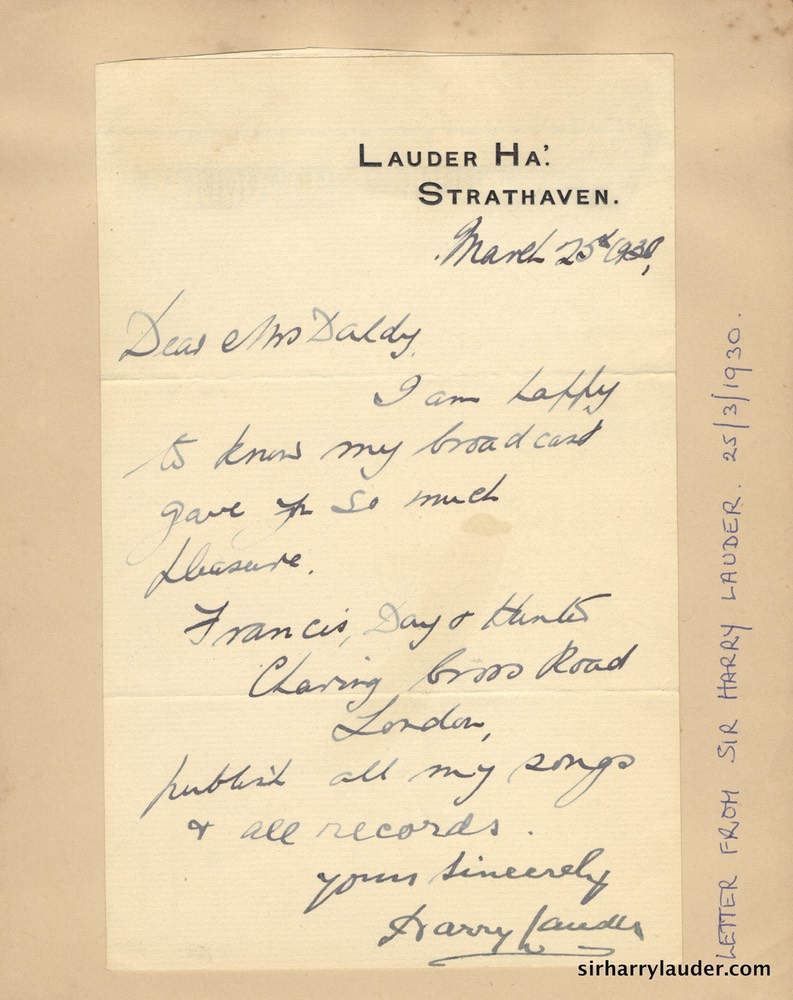 LAUDER HA'.
STRATHAVEN.
March 25th 1930,
Dear Mrs Daldy,
I am happy
to know my broadcast
gave yr so much
pleasure.
Francis, Day & Hunter
Charing Cross Road
London,
publish all my songs
& all records.
yours sincerely
Harry Lauder
LETTER FROM SIR HARRY LAUDER. 25/3/1930.
sirharrylauder.com